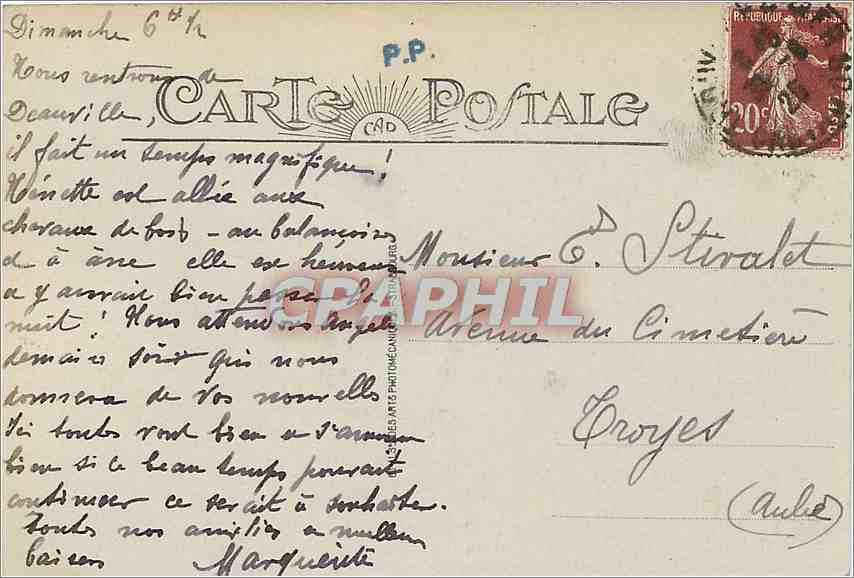 Dimanche 6 h 1/2
Nous rentrons de
Deauville,
il fait un temps magnifique !
Ninette est allée aux
chevaux de bois - au balançoires
et à âne elle est heureuse
a y aurait bien passé la
nuit ! Nous attendons Angèle
demain soir qui nous
donnera de vos nouvelles
Ici toutes vont bien et s'amusent
bien si ce beau temps pouvait
continuer ce serait à souhaiter.
toutes nos amitiés et meilleurs
baisers Marguerite
P.P.
CARTE POSTALE
CAD
REPUBLIQUE FRANÇAISE
20c POSTES
DES ARTS PHOTOMÉCANIQUES - STRASBOURG
CPAPHIL
Monsieur E. Stivalet
Avenue du Cimetière
Troyes
(Aube)